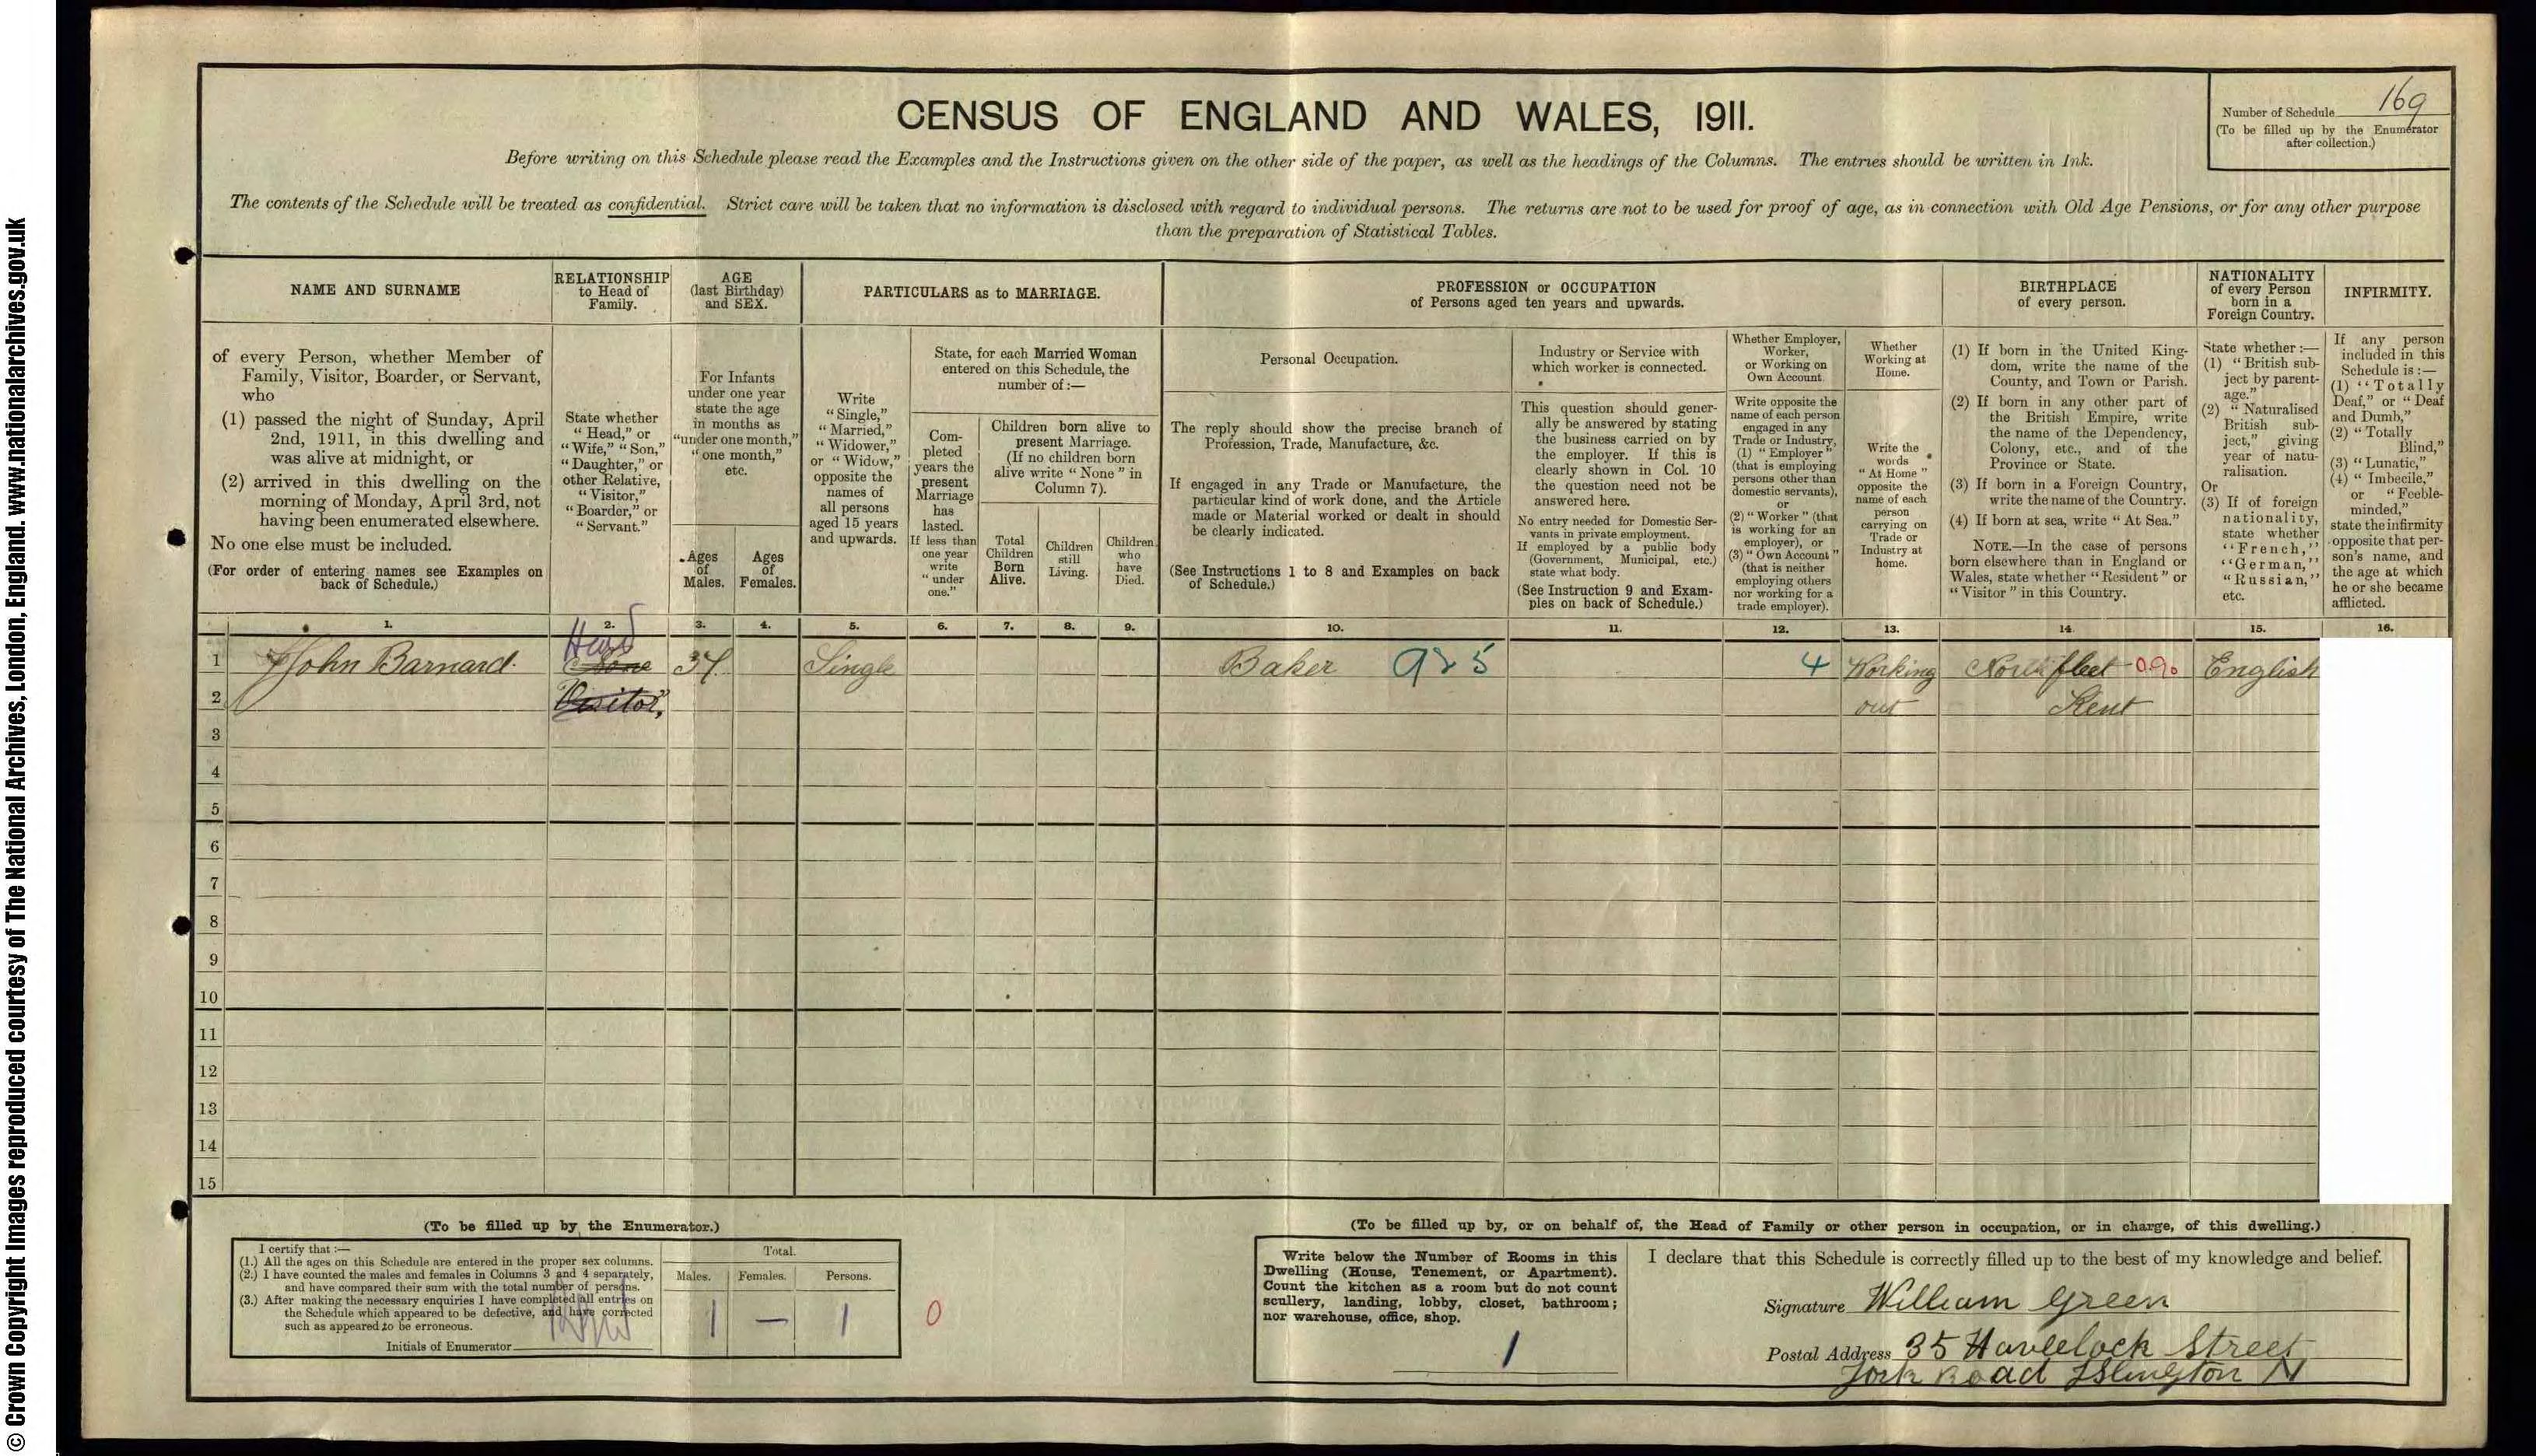 © Crown Copyright Images reproduced courtesy of The National Archives, London, England. www.nationalarchives.gov.uk
CENSUS OF ENGLAND AND WALES, 1911.
Number of Schedule 169
(To be filled up by the Enumerator
after collection.)
Before writing on this Schedule please read the Examples and the Instructions given on the other side of the paper, as well as the headings of the Columns. The entries should be written in Ink.
The contents of the Schedule will be treated as confidential. Strict care will be taken that no information is disclosed with regard to individual persons. The returns are not to be used for proof of age, as in connection with Old Age Pensions, or for any other purpose
than the preparation of Statistical Tables.
NAME AND SURNAME
of every Person, whether Member of
Family, Visitor, Boarder, or Servant,
who
(1) passed the night of Sunday, April
2nd, 1911, in this dwelling and
was alive at midnight, or
(2) arrived in this dwelling on the
morning of Monday, April 3rd, not
having been enumerated elsewhere.
No one else must be included.
(For order of entering names see Examples on
back of Schedule.)
RELATIONSHIP
to Head of
Family.
State whether
"Head," or
"Wife," "Son,"
"Daughter," or
other Relative,
"Visitor,"
"Boarder," or
"Servant."
AGE
(last Birthday)
and SEX.
For Infants
under one year
state the age
in months as
"under one month,"
"one month,"
etc.
Ages
of
Males.
Ages
of
Females.
PARTICULARS as to MARRIAGE.
Write
"Single,"
"Married,"
"Widower,"
or "Widow,"
opposite the
names of
all persons
aged 15 years
and upwards.
State, for each Married Woman
entered on this Schedule, the
number of :—
Com-
pleted
years the
present
Marriage
has
lasted.
If less than
one year
write
"under
one."
Children born alive to
present Marriage.
(If no children born
alive write "None" in
Column 7).
Total
Children
Born
Alive.
Children
still
Living.
Children
who
have
Died.
PROFESSION or OCCUPATION
of Persons aged ten years and upwards.
Personal Occupation.
The reply should show the precise branch of
Profession, Trade, Manufacture, &c.
If engaged in any Trade or Manufacture, the
particular kind of work done, and the Article
made or Material worked or dealt in should
be clearly indicated.
(See Instructions 1 to 8 and Examples on back
of Schedule.)
Industry or Service with
which worker is connected.
This question should gener-
ally be answered by stating
the business carried on by
the employer. If this is
clearly shown in Col. 10
the question need not be
answered here.
No entry needed for Domestic Ser-
vants in private employment.
If employed by a public body
(Government, Municipal, etc.)
state what body.
(See Instruction 9 and Exam-
ples on back of Schedule.)
Whether Employer,
Worker,
or Working on
Own Account.
Write opposite the
name of each person
engaged in any
Trade or Industry,
(1) "Employer"
(that is employing
persons other than
domestic servants),
or
(2) "Worker" (that
is working for an
employer), or
(3) "Own Account"
(that is neither
employing others
nor working for a
trade employer).
Whether
Working at
Home.
Write the
words
"At Home"
opposite the
name of each
person
carrying on
Trade or
Industry at
home.
BIRTHPLACE
of every person.
(1) If born in the United King-
dom, write the name of the
County, and Town or Parish.
(2) If born in any other part of
the British Empire, write
the name of the Dependency,
Colony, etc., and of the
Province or State.
(3) If born in a Foreign Country,
write the name of the Country.
(4) If born at sea, write "At Sea."
NOTE.—In the case of persons
born elsewhere than in England or
Wales, state whether "Resident" or
"Visitor" in this Country.
NATIONALITY
of every Person
born in a
Foreign Country.
State whether :—
(1) "British sub-
ject by parent-
age."
(2) "Naturalised
British sub-
ject," giving
year of natu-
ralisation.
Or
(3) If of foreign
nationality,
state whether
"French,"
"German,"
"Russian,"
etc.
INFIRMITY.
If any person
included in this
Schedule is :—
(1) "Totally
Deaf," or "Deaf
and Dumb,"
(2) "Totally
Blind,"
(3) "Lunatic,"
(4) "Imbecile,"
or "Feeble-
minded,"
state the infirmity
opposite that per-
son's name, and
the age at which
he or she became
afflicted.
1. 2. 3. 4. 5. 6. 7. 8. 9. 10. 11. 12. 13. 14. 15. 16.
Head
1 John Barnard 37 Single Baker 925 4 Working Northfleet 090 English
2 Visitor, out Kent
3
4
5
6
7
8
9
10
11
12
13
14
15
(To be filled up by the Enumerator.)
I certify that :—
(1.) All the ages on this Schedule are entered in the proper sex columns.
(2.) I have counted the males and females in Columns 3 and 4 separately,
and have compared their sum with the total number of persons.
(3.) After making the necessary enquiries I have completed all entries on
the Schedule which appeared to be defective, and have corrected
such as appeared to be erroneous.
Initials of Enumerator
Total.
Males. Females. Persons.
1 — 1 0
(To be filled up by, or on behalf of, the Head of Family or other person in occupation, or in charge, of this dwelling.)
Write below the Number of Rooms in this
Dwelling (House, Tenement, or Apartment).
Count the kitchen as a room but do not count
scullery, landing, lobby, closet, bathroom;
nor warehouse, office, shop.
1
I declare that this Schedule is correctly filled up to the best of my knowledge and belief.
Signature William Green
Postal Address 35 Havelock Street
York Road Islington N